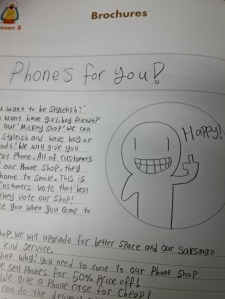 Lesson 8
Brochures
Phone's for you!
u want to be Stylish?
want have girl, boy friends?
our 'Mickey shop' we can
stylish and have boy or
We will give you
Phone. All of customers
our Phone Shop. they
home to Smile. This is
customers vote that best
they vote our Shop!
ee you when you come to
Happy!
hop. We will upgrade for better space and our salesman
kind service.
why, you need to come to our Phone shop
sell Phones for 50% Price off!
We give a Phone case for cheap!
can do the